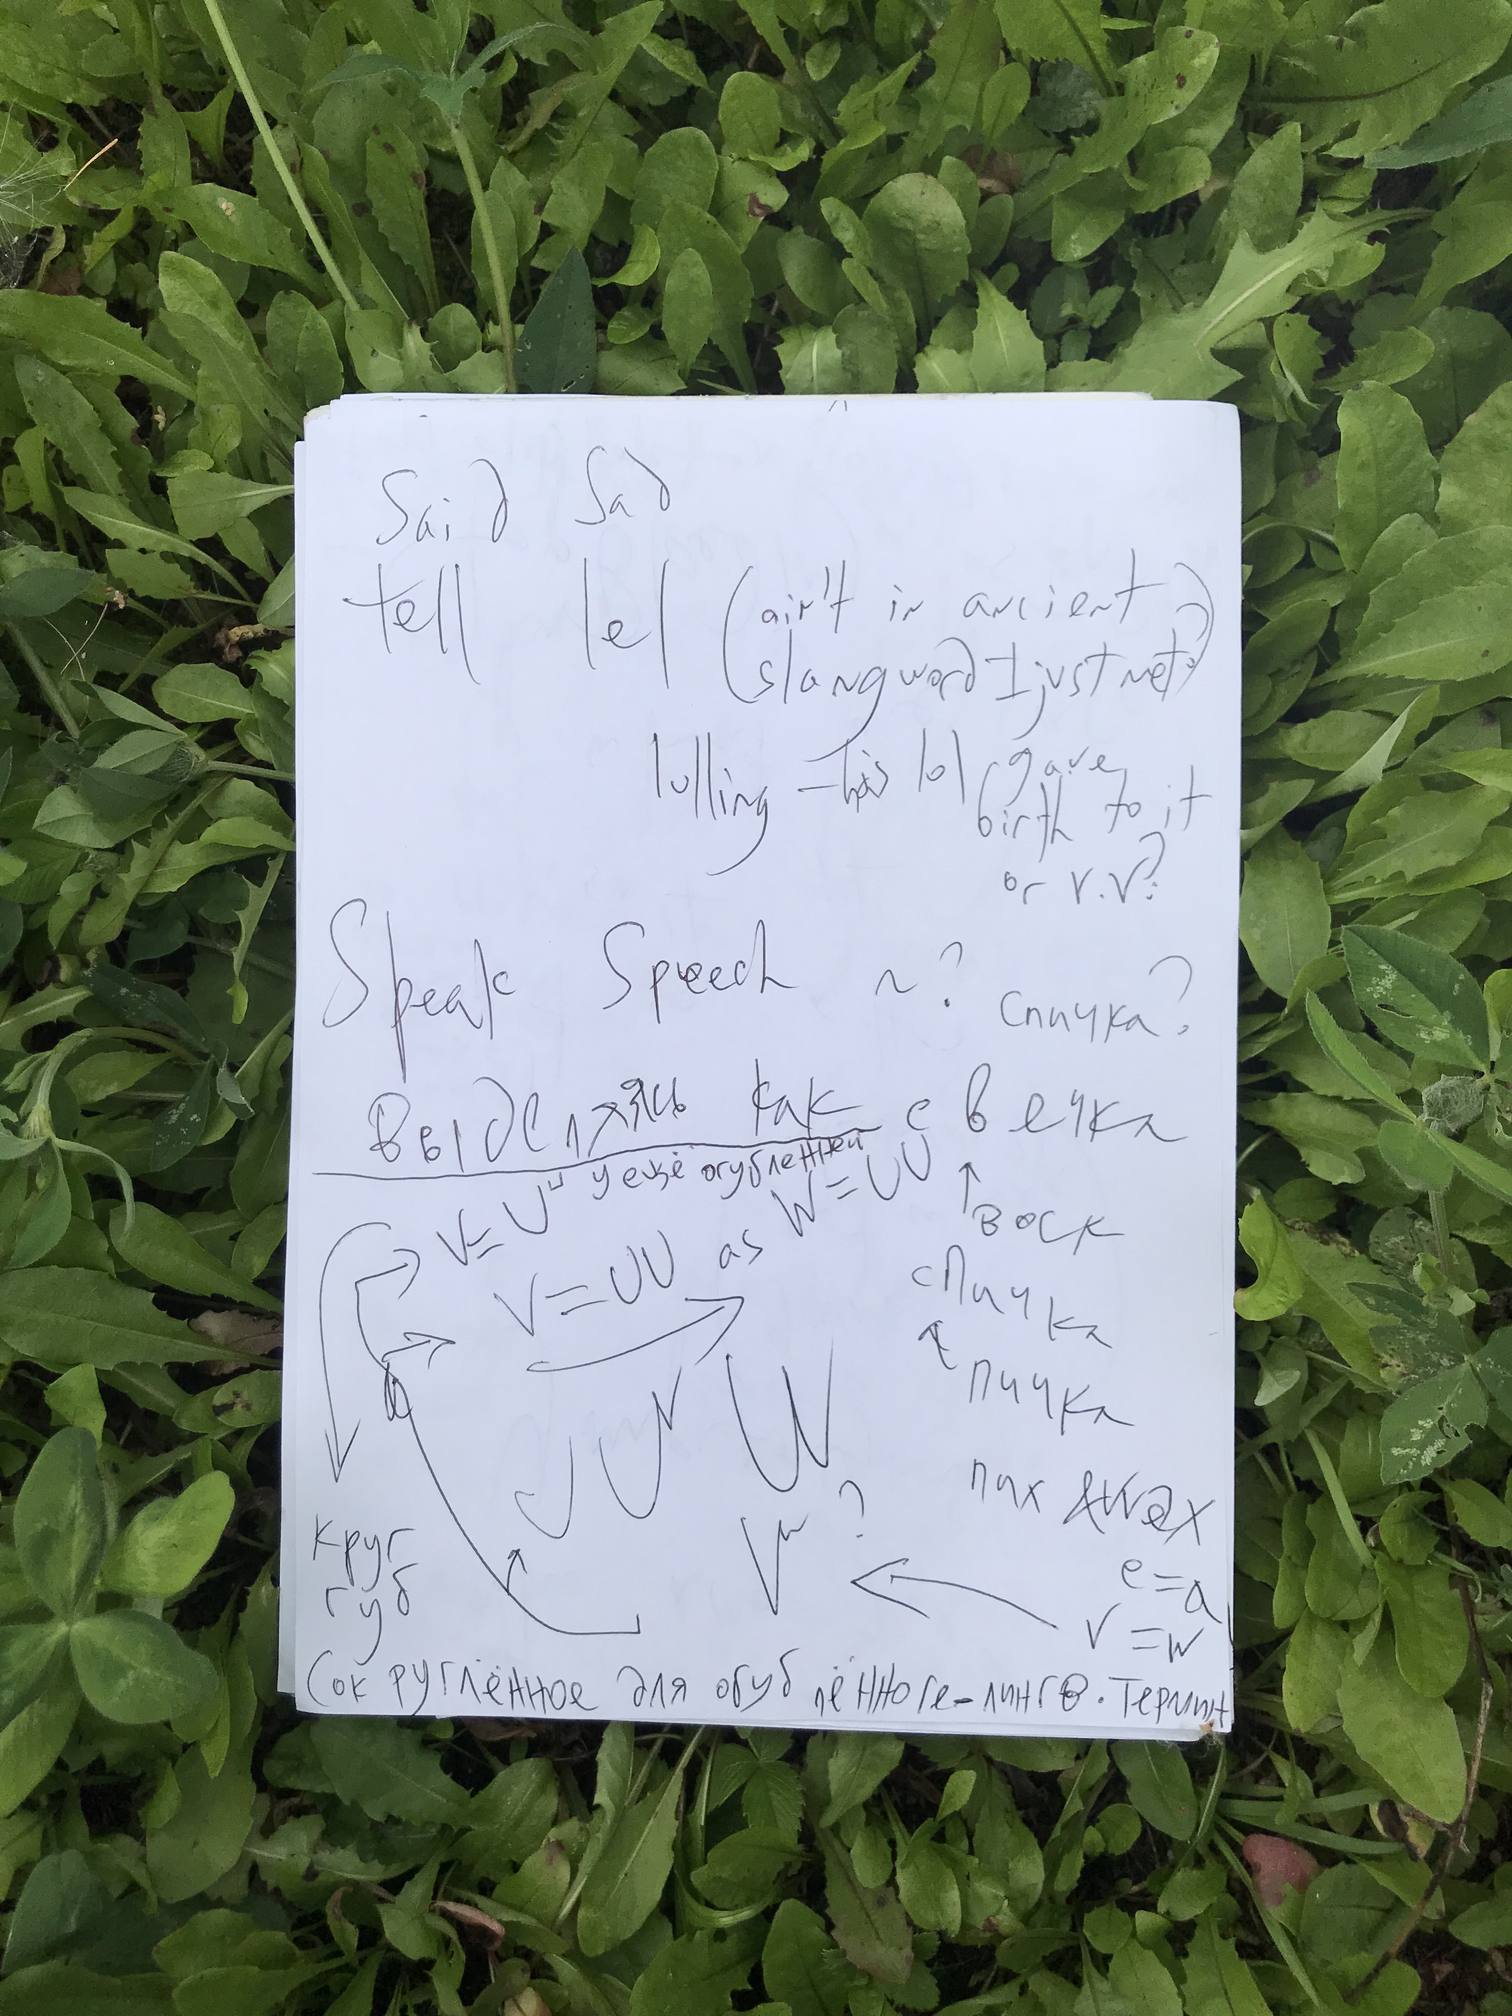 Said Sad
tell lel (ain't in ancient
slangword I just met?)
lulling - has lol gave
birth to it
or v.v?
Speak Speech ~? спичка?
Выделяясь как свечка
V=U" у ещё огубленней
V=UU as W=UU
↑воск
спичка
пичка
U U W
пих
V" ?
e=a
v=w
круг
губ
Сокруглённое для огублённого-лингв. термин